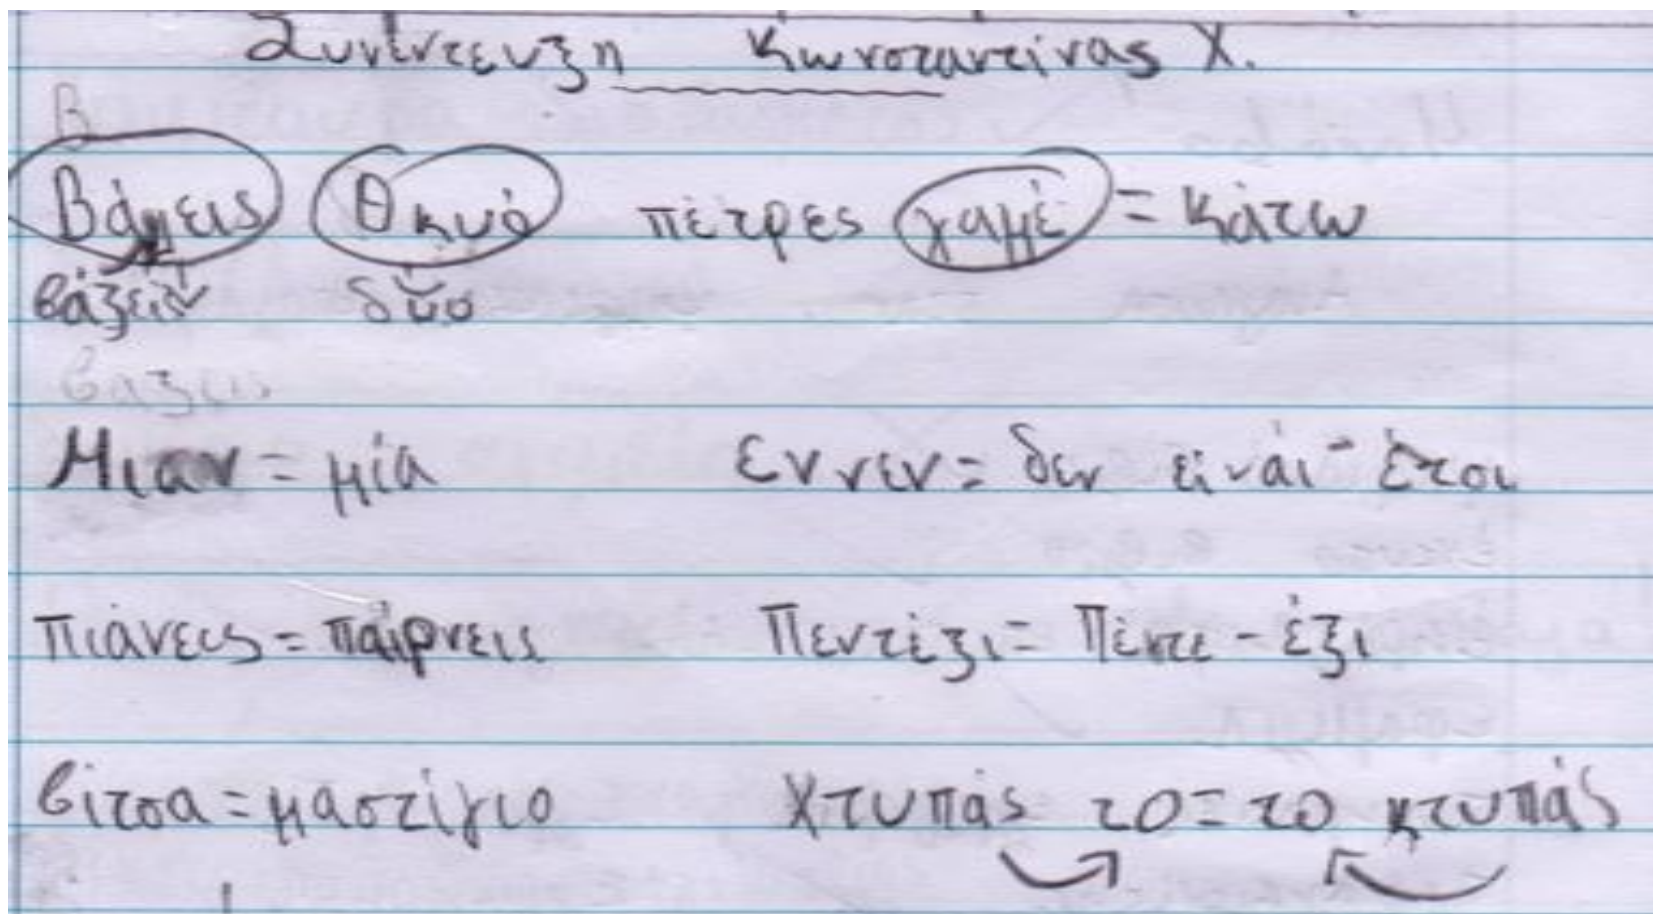 Συνέντευξη Κωνσταντίνας Χ.
Βάλλεις Θκυό πέτρες χαμέ = κάτω
βάζεις δύο
βάζεις
Μιαν = μία Εν νεν = δεν είναι έτσι
Πιάνεις = παίρνεις Πεντέξι = Πέντε - έξι
βίτσα = μαστίγιο Χτυπάς το = το κτυπάς